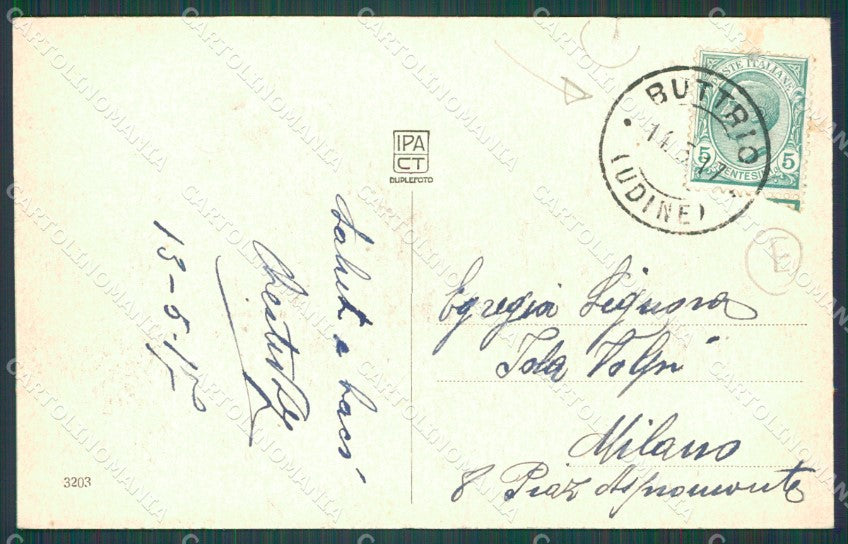 POSTE ITALIANE
5 CENTESIMI 5
BUTTRIO
14.5.17
(UDINE)
IPA
CT
DUPLEFOTO
Saluti e baci
13-5-17
Egregia Signora
Isla Volpi
Milano
8 Piaz Aspromonte
E
3203
CARTOLINOMANIA